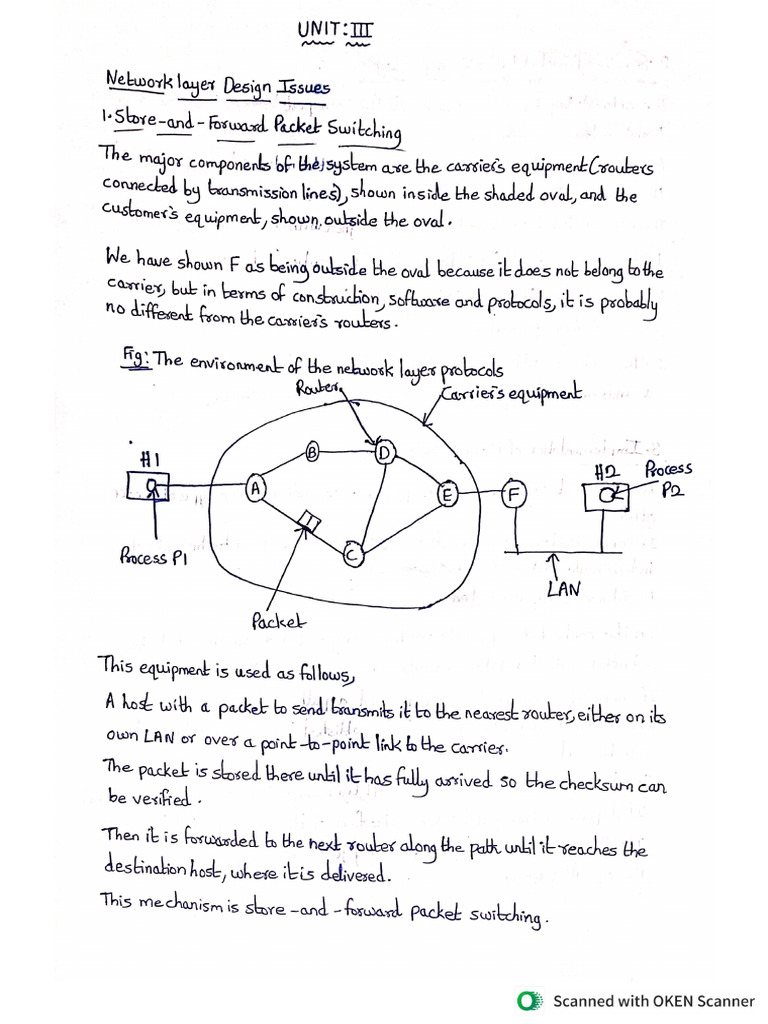 UNIT:III
Network layer Design Issues
1. Store-and-Forward Packet Switching
The major components of the system are the carrier's equipment (routers
connected by transmission lines), shown inside the shaded oval, and the
customer's equipment, shown outside the oval.
We have shown F as being outside the oval because it does not belong to the
carrier, but in terms of construction, software and protocols, it is probably
no different from the carrier's routers.
Fig: The environment of the network layer protocols
Router
Carrier's equipment
H1
B
D
H2
Process
P2
A
E
F
C
Process P1
LAN
Packet
This equipment is used as follows,
A host with a packet to send transmits it to the nearest router, either on its
own LAN or over a point-to-point link to the carrier.
The packet is stored there until it has fully arrived so the checksum can
be verified.
Then it is forwarded to the next router along the path until it reaches the
destination host, where it is delivered.
This mechanism is store-and-forward packet switching.
Scanned with OKEN Scanner